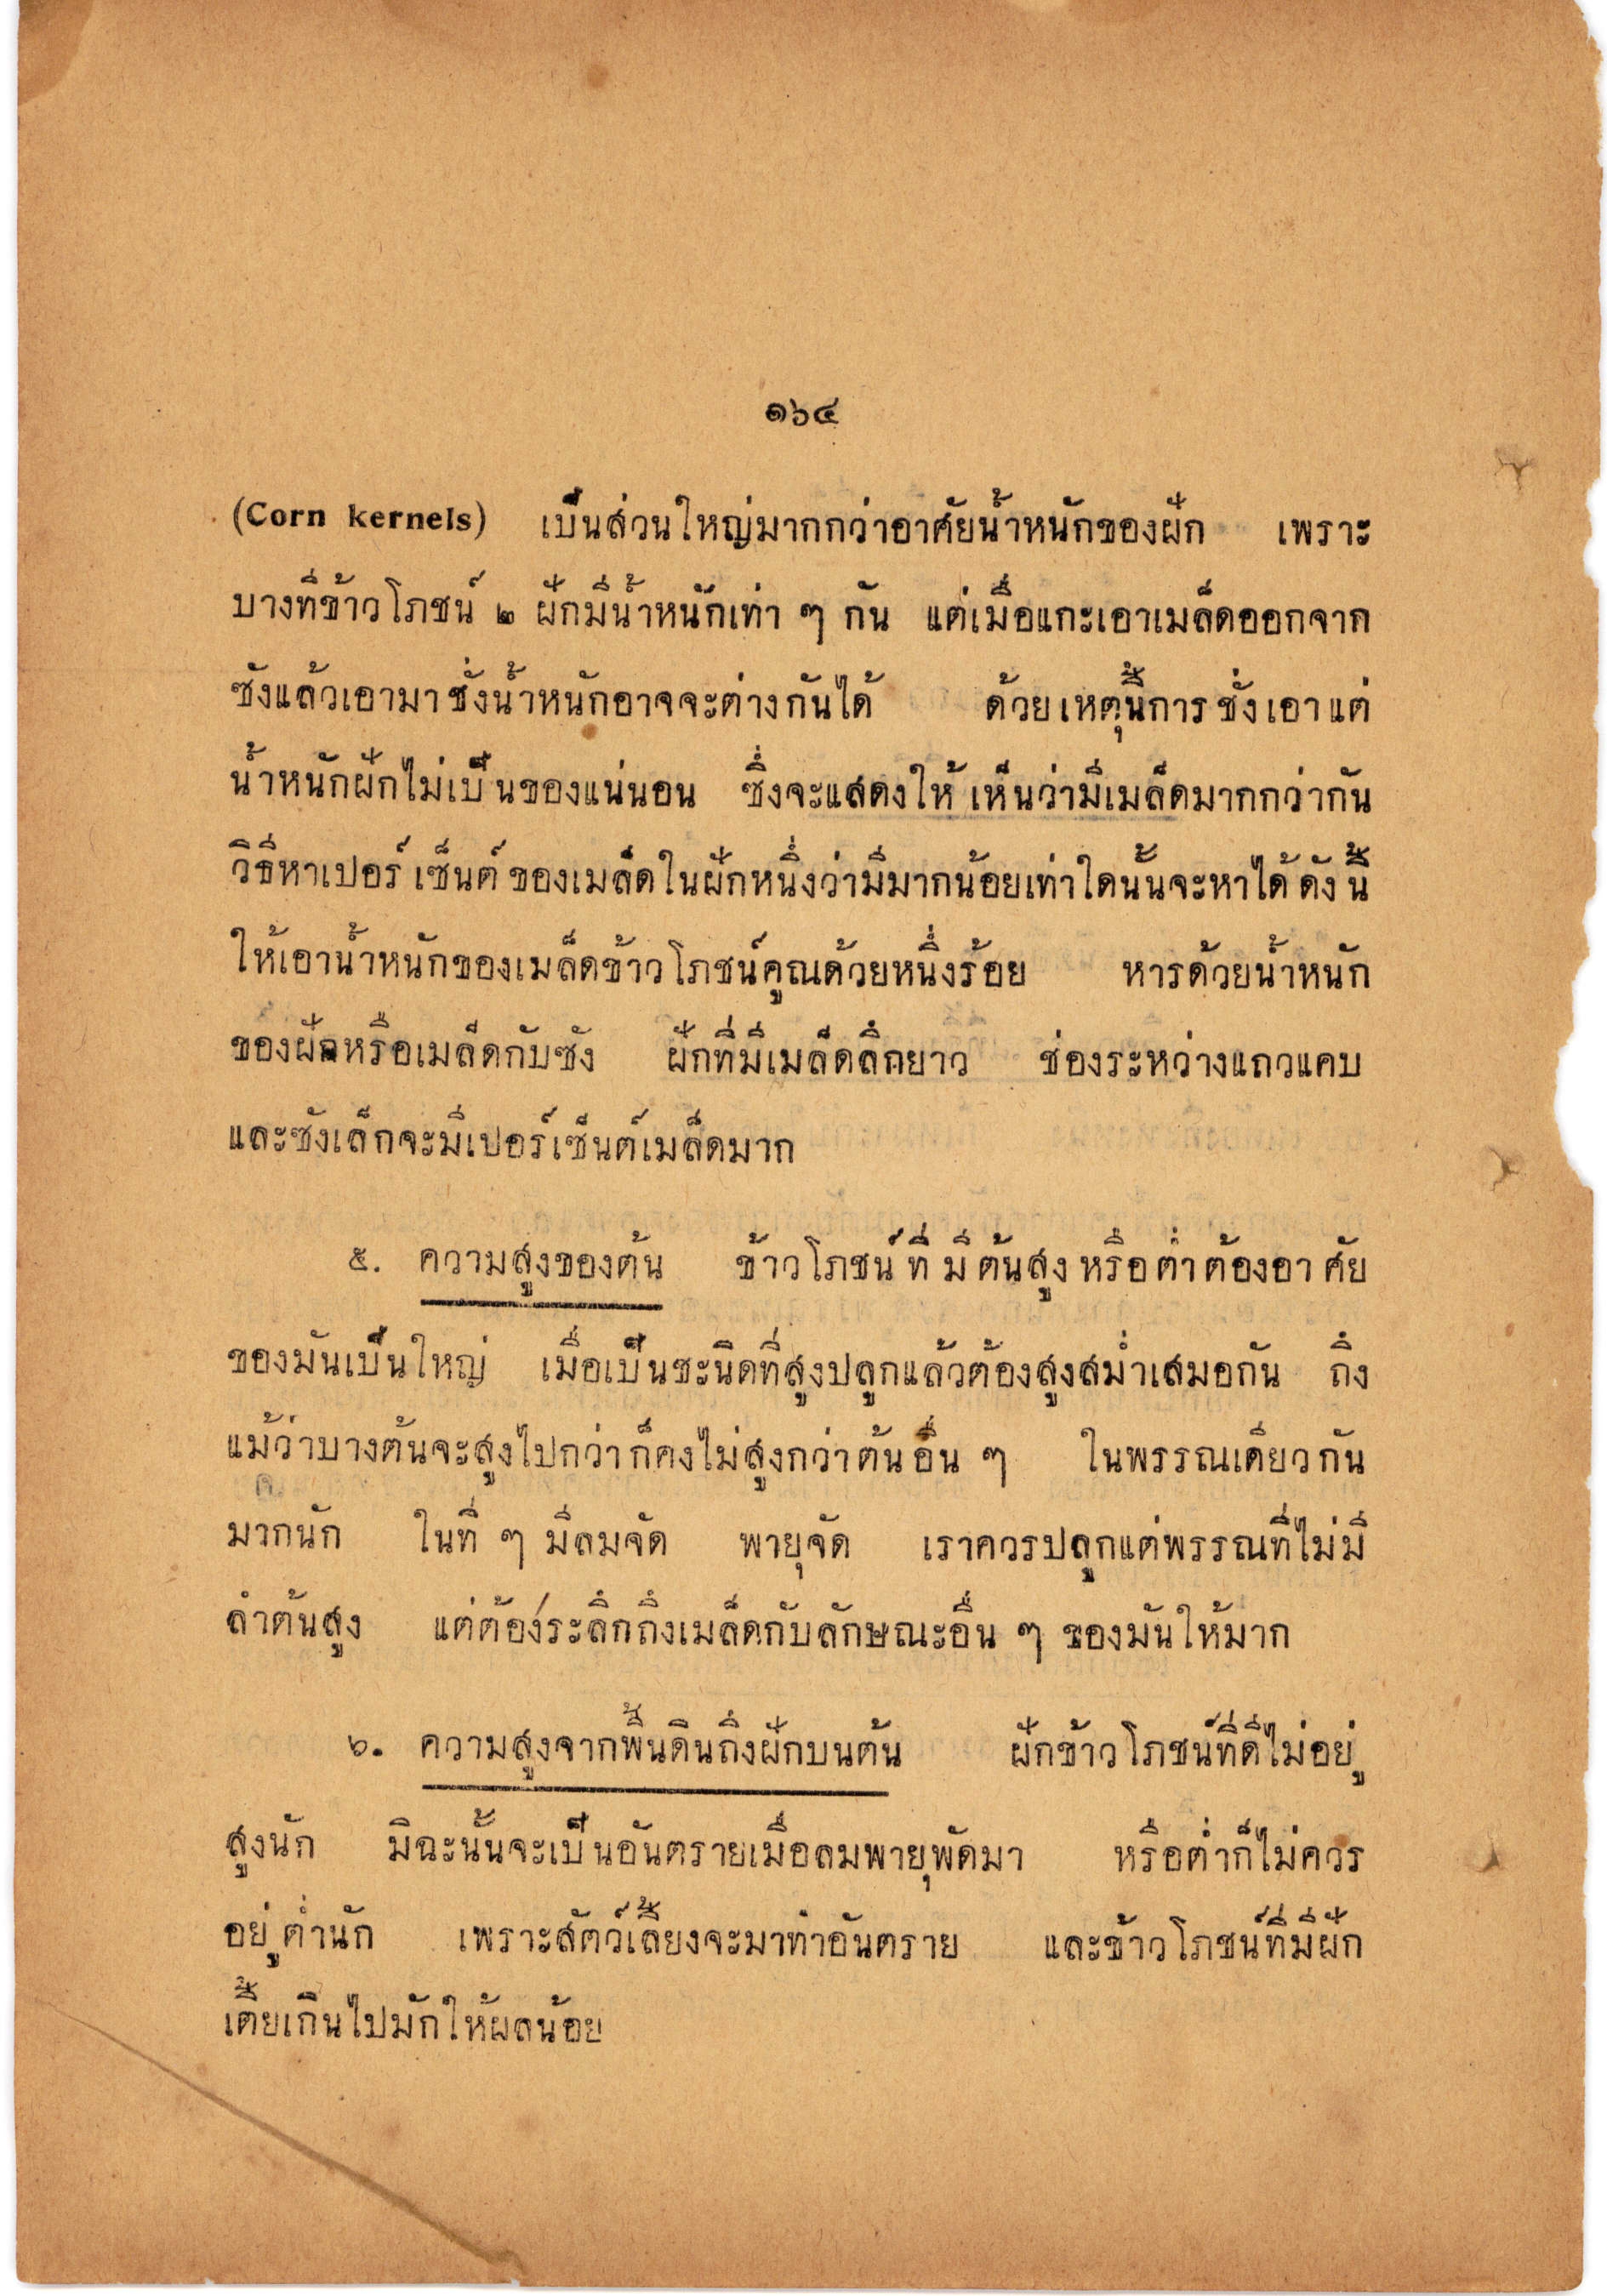 ๑๖๔
(Corn kernels) เป็นส่วนใหญ่มากกว่าอาศัยน้ำหนักของฝัก เพราะ
บางทีข้าวโภชน์ ๒ ฝักมีน้ำหนักเท่า ๆ กัน แต่เมื่อแกะเอาเมล็ดออกจาก
ซังแล้วเอามาชั่งน้ำหนักอาจจะต่างกันได้ ด้วยเหตุนี้การชั่งเอาแต่
น้ำหนักฝักไม่เป็นของแน่นอน ซึ่งจะแสดงให้เห็นว่ามีเมล็ดมากกว่ากัน
วิธีหาเปอร์เซ็นต์ของเมล็ดในฝักหนึ่งว่ามีมากน้อยเท่าใดนั้นจะหาได้ดังนี้
ให้เอาน้ำหนักของเมล็ดข้าวโภชน์คูณด้วยหนึ่งร้อย หารด้วยน้ำหนัก
ของฝักหรือเมล็ดกับซัง ฝักที่มีเมล็ดลึกยาว ช่องระหว่างแถวแคบ
และซังเล็กจะมีเปอร์เซ็นต์เมล็ดมาก
๕. ความสูงของต้น ข้าวโภชน์ที่มีต้นสูงหรือต่ำต้องอาศัย
ของมันเป็นใหญ่ เมื่อเป็นชะนิดที่สูงปลูกแล้วต้องสูงสม่ำเสมอกัน ถึง
แม้ว่าบางต้นจะสูงไปกว่าก็คงไม่สูงกว่าต้นอื่น ๆ ในพรรณเดียวกัน
มากนัก ในที่ ๆ มีลมจัด พายุจัด เราควรปลูกแต่พรรณที่ไม่มี
ลำต้นสูง แต่ต้องระลึกถึงเมล็ดกับลักษณะอื่น ๆ ของมันให้มาก
๖. ความสูงจากพื้นดินถึงฝักบนต้น ฝักข้าวโภชน์ที่ดีไม่อยู่
สูงนัก มิฉะนั้นจะเป็นอันตรายเมื่อลมพายุพัดมา หรือต่ำก็ไม่ควร
อยู่ต่ำนัก เพราะสัตว์เลี้ยงจะมาทำอันตราย และข้าวโภชน์ที่มีฝัก
เตี้ยเกินไปมักให้ผลน้อย